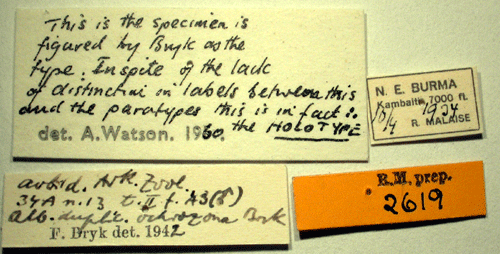 This is the specimen is
figured by Bryk as the
type. Inspite of the lack
of distinction in labels between this
and the paratypes this is in fact
det. A. Watson. 1960. the HOLOTYPE
N. E. BURMA
Kambaiti, 7000 ft.
10/4 1934
R. MALAISE
Ark. Zool.
34A n.13 t. II f. 43 (♂)
alb. duplic. ochrozona Bryk
F. Bryk det. 1942
R.M. prep.
2619